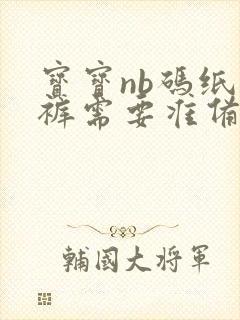 寶寶nb碼纸
裤需要准備
輔國大将軍